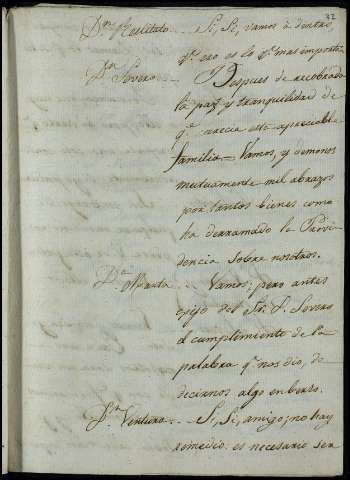 32
Dn. Restituto... Si, Si, vamos à dentro,
qe. eso es lo qe. mas importa.
Dn. Severo... Despues de recobrada
la paz y tranquilidad de
qe. carecia esta apreciable
familia = Vamos, y demonos
mutuamente mil abrazos
por tantos bienes como
ha derramado la Provi-
dencia sobre nosotros.
Da. Marta... Vamos; pero antes
exijo del Sr. D. Severo
el cumplimiento de la
palabra qe. nos dio, de
decirnos algo en berso.
Dn. Ventura... Si, Si, amigo; no hay
remedio: es necesario ser